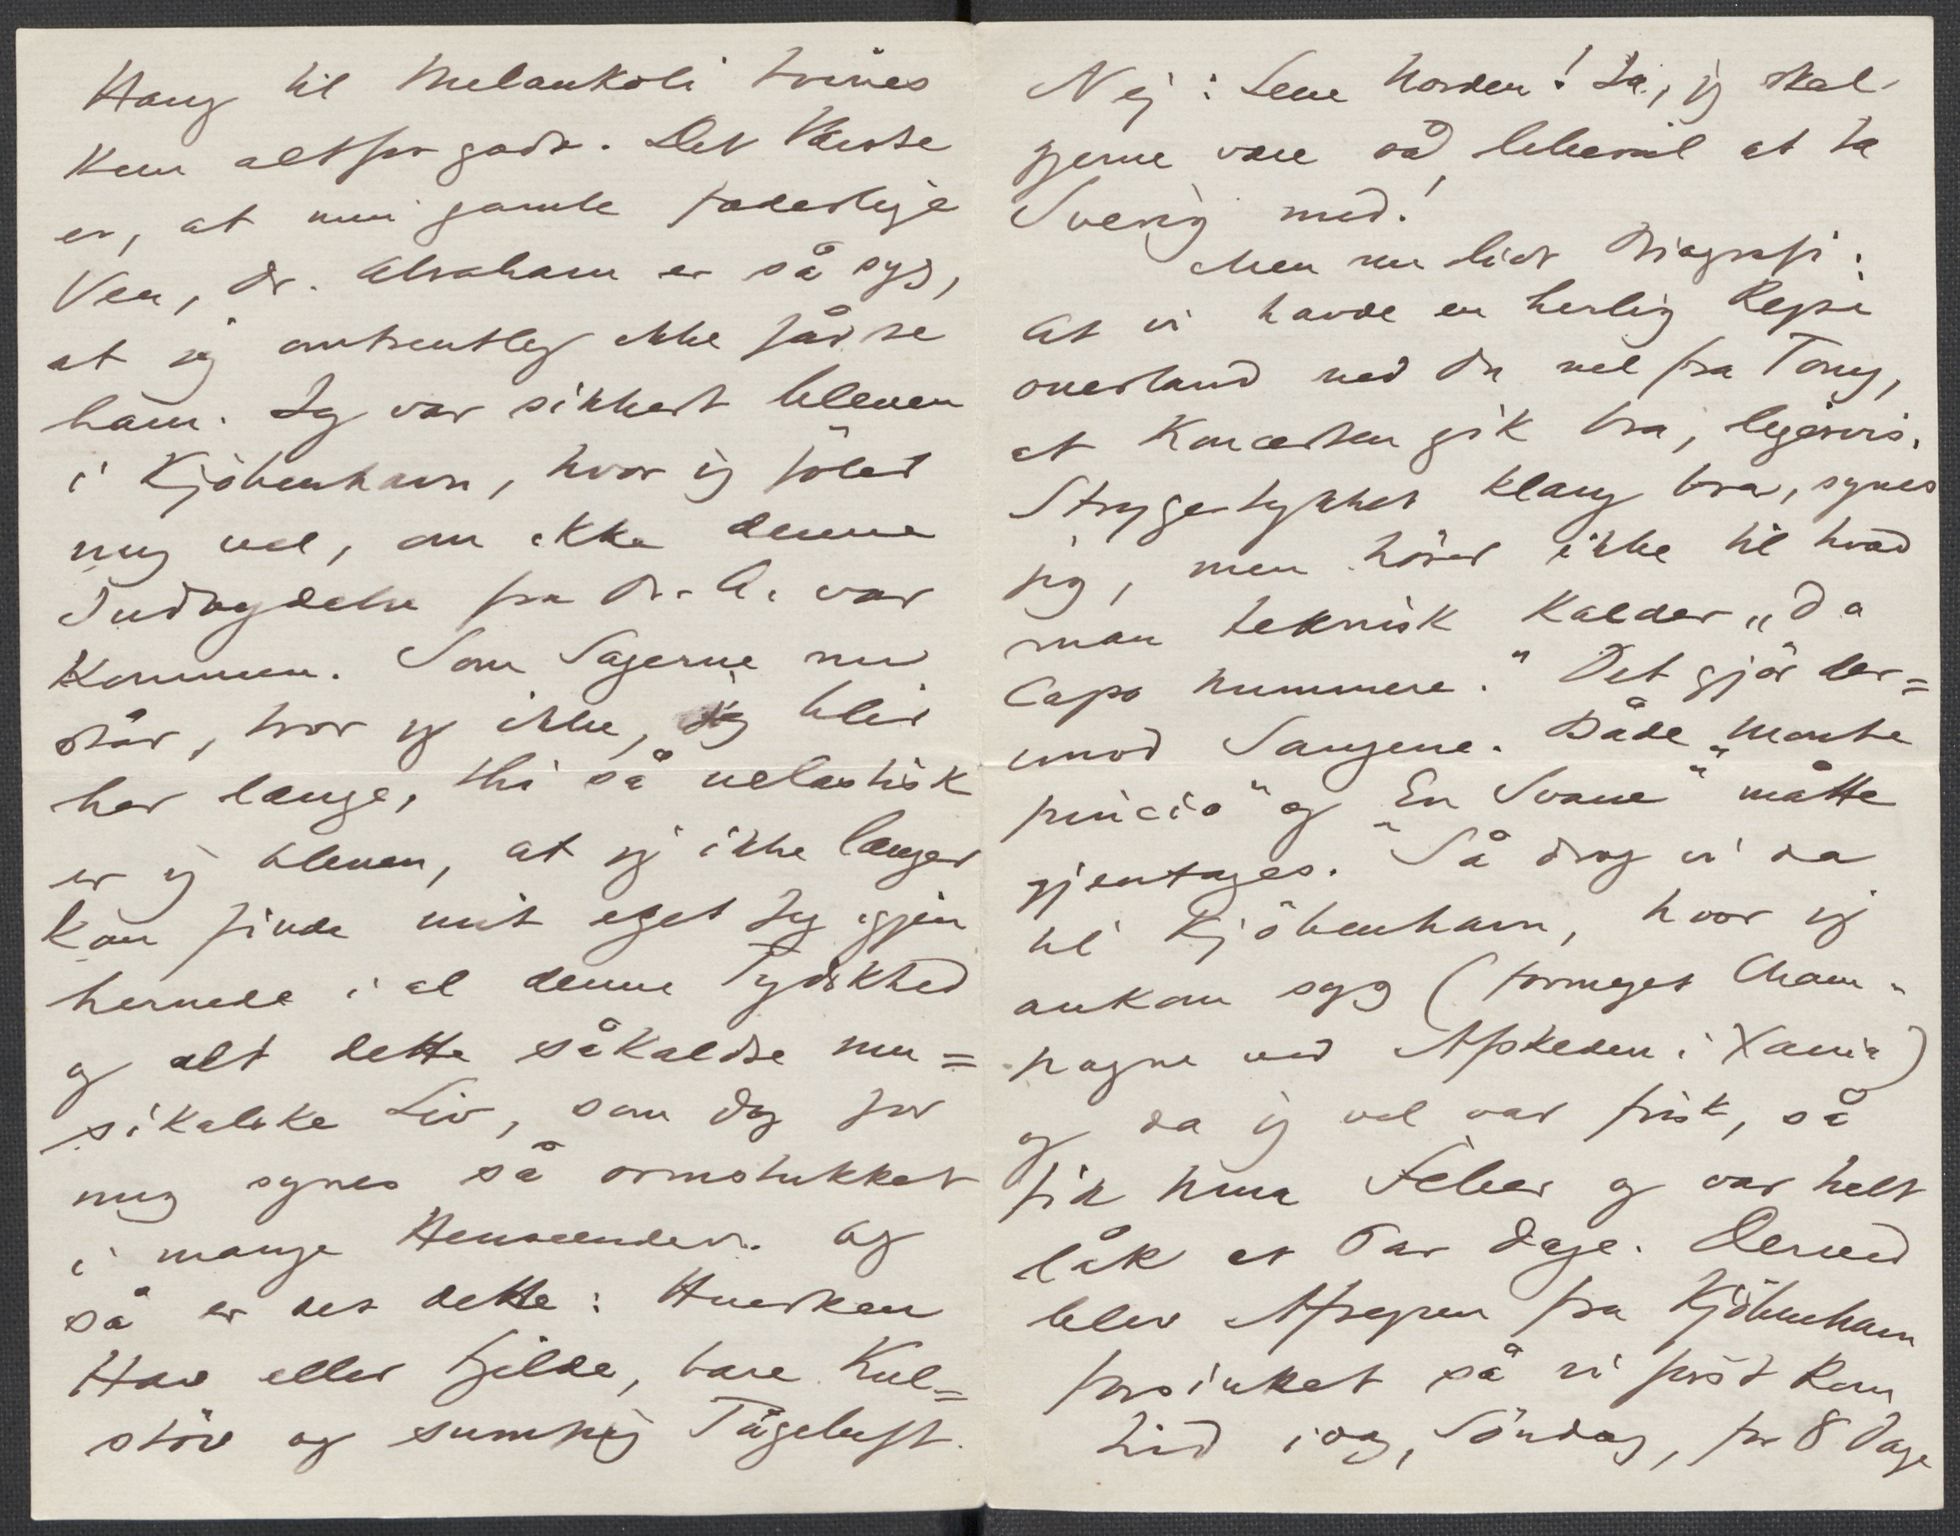 Hang til Melankoli trives
kun altfor godt. Det Værste
er, at min gamle faderlige
Ven, Dr. Abraham er så syg,
at jeg omtrentlig ikke får se
ham. Jeg var sikkert bleven
i Kjöbenhavn, hvor jeg følte
mig vel, om ikke denne
Indbydelse fra Dr. A. var
kommen. Som Sagerne nu
står, tror jeg ikke, jeg blir
her længe, thi så uelastisk
er jeg bleven, at jeg ikke længer
kan finde mit eget Jeg igjen
hernede i al denne Tydskhed
og alt dette såkaldte mu=
sikalske Liv, som dog for
mig synes så ormstukket
i mange Henseender. Og
så er det dette: Hverken
Hav eller Fjelde, bare Kul=
støv og sumpig Tågeluft.
Nej: Leve Norden! Ja, jeg skal
gjerne være så liberal at ta
Sverig med!
Men nu lidt Biografi:
At vi havde en herlig Rejse
overland ved du vel fra Tony,
at Koncerten gik bra, ligesvis.
Strygestykket klang bra, synes
jeg, men hörer ikke til hvad
man teknisk kalder „Da
Capo nummere." Det gjör der=
imod Sangene. Både „Monte
pincio" og „En Svane" måtte
gjentages. Så drog vi da
til Kjöbenhavn, hvor jeg
ankom syg (formeget Cham-
pagne ved Afskeden i Xania)
og da jeg vel var frisk, så
fik Nina Feber og var helt
låk et Par Dage. Derved
blev Afrejsen fra Kjöbenhavn
forsinket så vi först kom
hid idag, Söndag, for 8 Dage